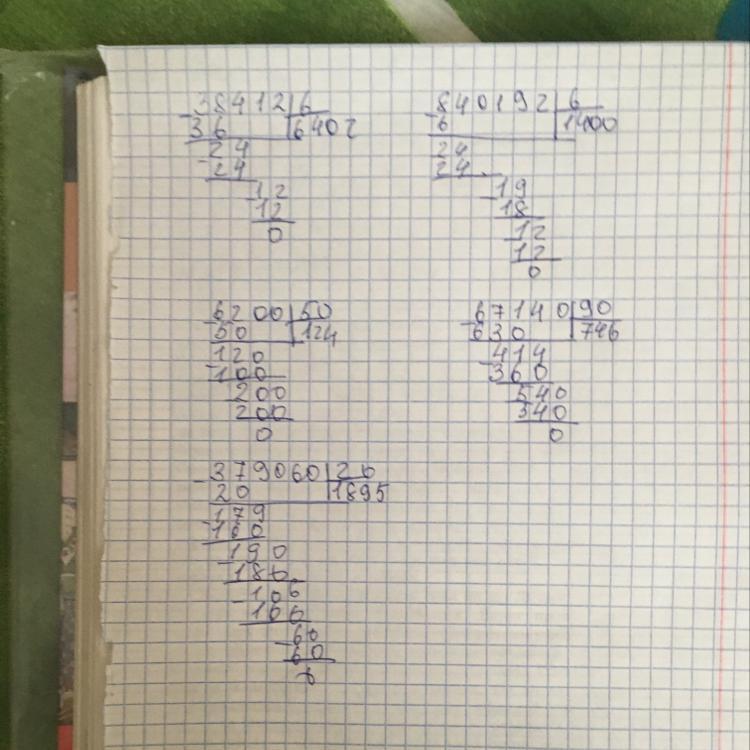 38412 6
36 6402
24
24
12
12
0
840192 6
6 1400
24
24
19
18
12
12
0
6200 50
50 124
120
100
200
200
0
67140 90
630 746
414
360
540
540
0
379060 20
20 1895
179
160
190
180
106
100
60
60
0